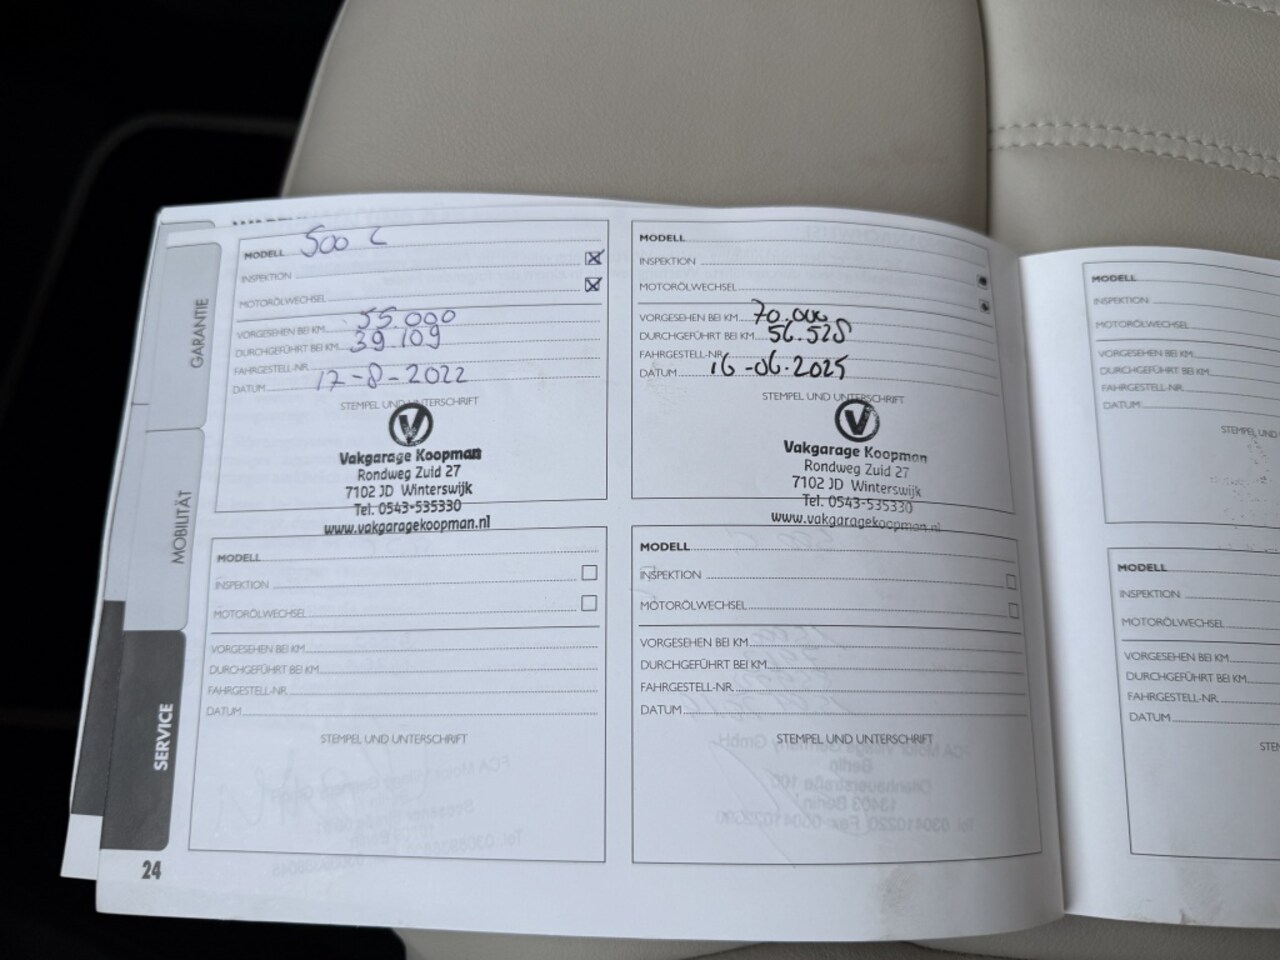 GARANTIE
MOBILITÄT
SERVICE
MODELL 500 C
INSPEKTION
MOTORÖLWECHSEL
VORGESEHEN BEI KM 55.000
DURCHGEFÜHRT BEI KM 39.109
FAHRGESTELL-NR.
DATUM 17-8-2022
STEMPEL UND UNTERSCHRIFT
V
Vakgarage Koopman
Rondweg Zuid 27
7102 JD Winterswijk
Tel. 0543-535330
www.vakgaragekoopman.nl
MODELL
INSPEKTION
MOTORÖLWECHSEL
VORGESEHEN BEI KM 70.000
DURCHGEFÜHRT BEI KM 56.528
FAHRGESTELL-NR.
DATUM 16-06-2025
STEMPEL UND UNTERSCHRIFT
V
Vakgarage Koopman
Rondweg Zuid 27
7102 JD Winterswijk
Tel. 0543-535330
www.vakgaragekoopman.nl
MODELL
INSPEKTION
MOTORÖLWECHSEL
VORGESEHEN BEI KM
DURCHGEFÜHRT BEI KM
FAHRGESTELL-NR.
DATUM
STEMPEL UND UNTERSCHRIFT
MODELL
INSPEKTION
MOTORÖLWECHSEL
VORGESEHEN BEI KM
DURCHGEFÜHRT BEI KM
FAHRGESTELL-NR.
DATUM
STEMPEL UND UNTERSCHRIFT
24
MODELL
INSPEKTION
MOTORÖLWECHSEL
VORGESEHEN BEI KM
DURCHGEFÜHRT BEI KM
FAHRGESTELL-NR.
DATUM
STEMPEL UND
MODELL
INSPEKTION
MOTORÖLWECHSEL
VORGESEHEN BEI KM
DURCHGEFÜHRT BEI KM
FAHRGESTELL-NR.
DATUM